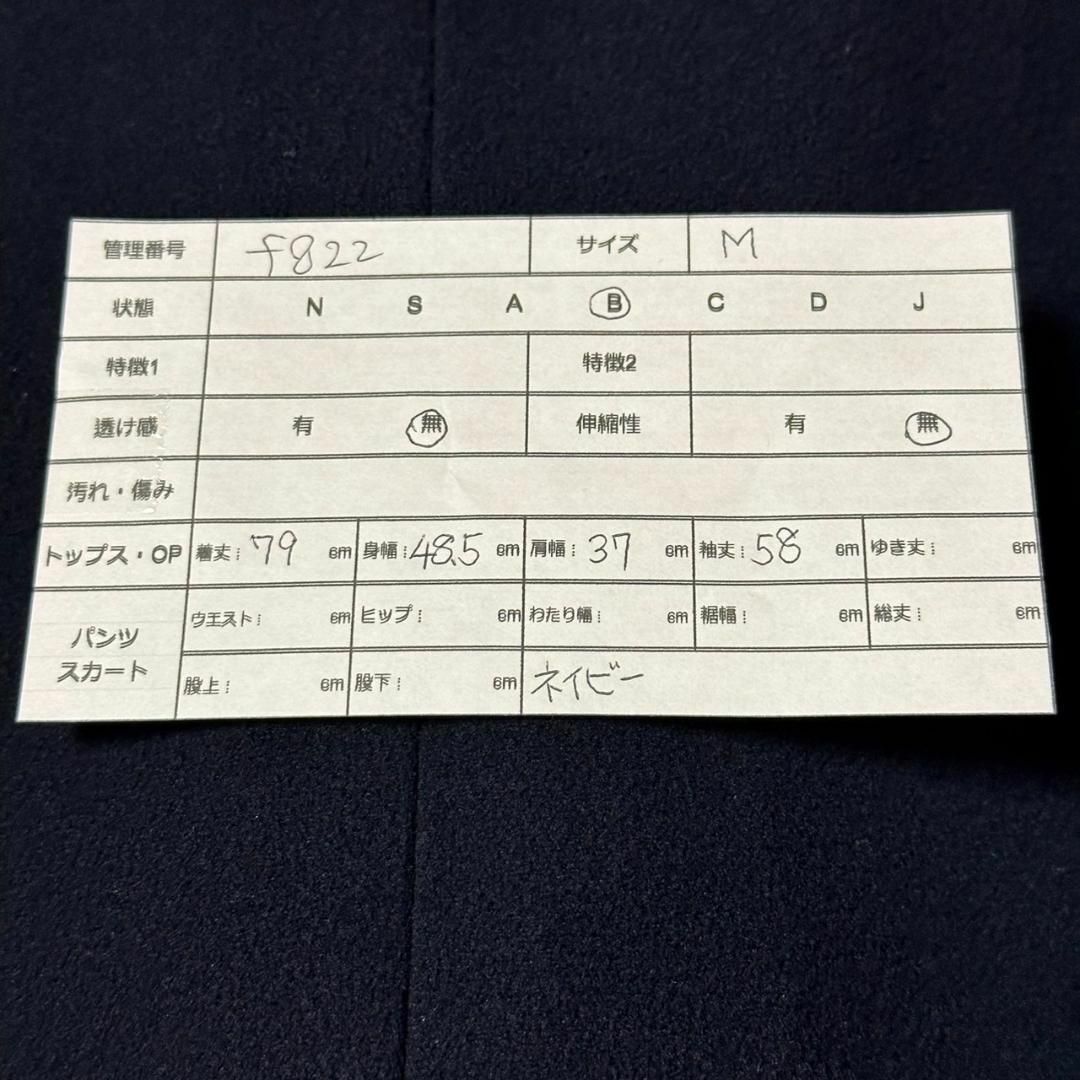 管理番号 f822 サイズ M
状態 N S A B C D J
特徴1 特徴2
透け感 有 無 伸縮性 有 無
汚れ・傷み
トップス・OP 着丈: 79 cm 身幅: 48.5 cm 肩幅: 37 cm 袖丈: 58 cm ゆき丈: cm
パンツ スカート
ウエスト: cm ヒップ: cm わたり幅: cm 裾幅: cm 総丈: cm
股上: cm 股下: cm ネイビー